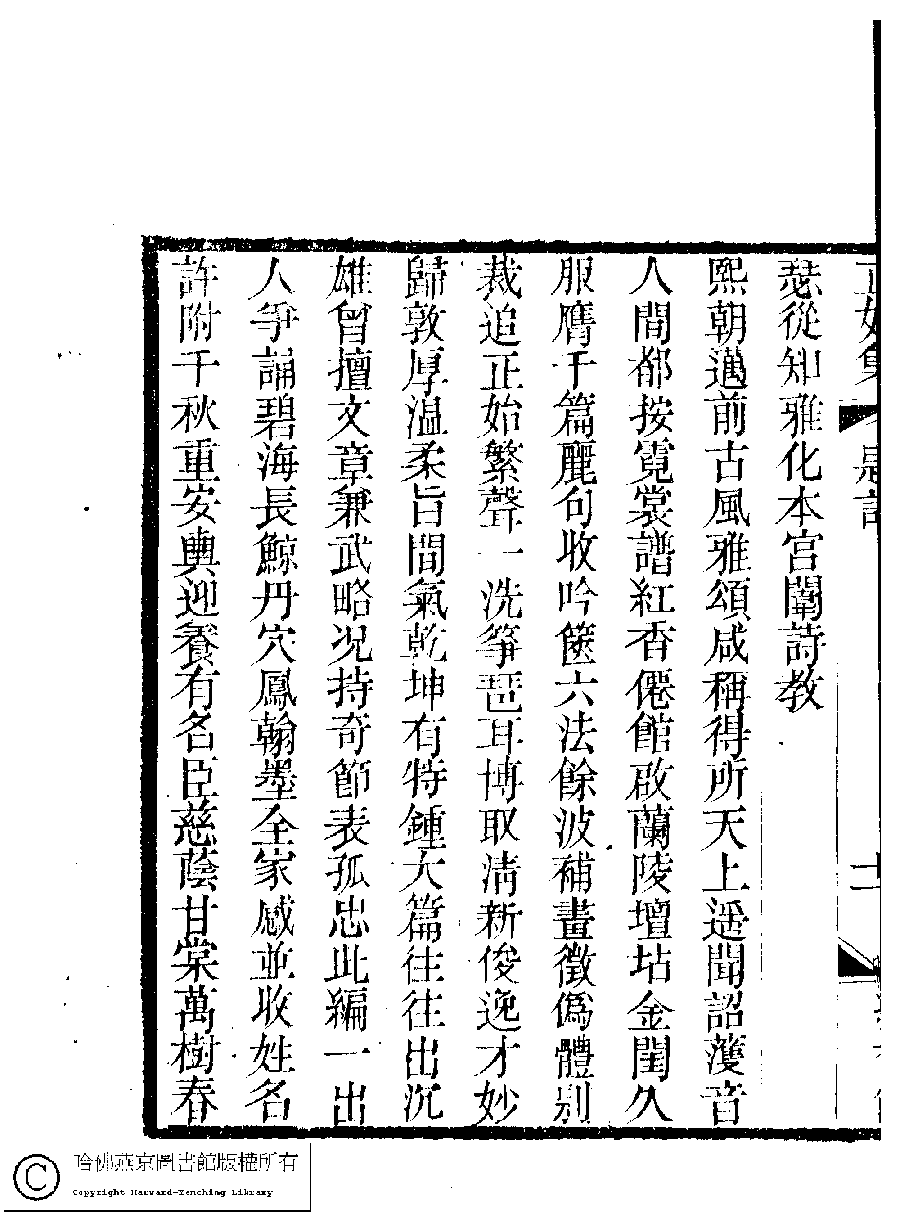 正始集
題詞
十一
瑟從知雅化本宮闈詩教
熙朝邁前古風雅頌咸稱得所天上遥聞韶濩音
人間都按霓裳譜紅香僊館啟蘭陵壇坫金閨久
服膺千篇麗句收吟篋六法餘波補畫徵僞體别
裁追正始繁聲一洗箏琶耳博取清新俊逸才妙
歸敦厚温柔旨間氣乾坤有特鍾大篇往往出沉
雄曾擅文章兼武略况持奇節表孤忠此編一出
人爭誦碧海長鯨丹穴鳳翰墨全家感並收姓名
許附千秋重安輿迎養有名臣慈蔭甘棠萬樹春
哈佛燕京圖書館版權所有
Copyright Harvard-Yenching Library